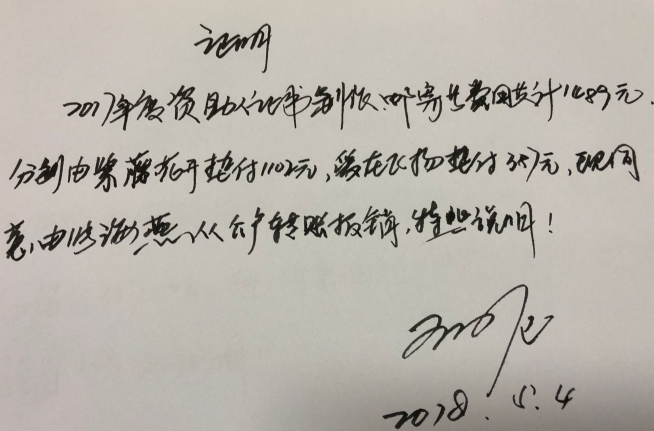 证明
2017年度资助人证书制作、邮寄等费用共计1489元.
分别由紫藤花开垫付1102元,爱在飞扬垫付387元,现同
意由海燕从公户转账报销,特此说明!
2018.5.4